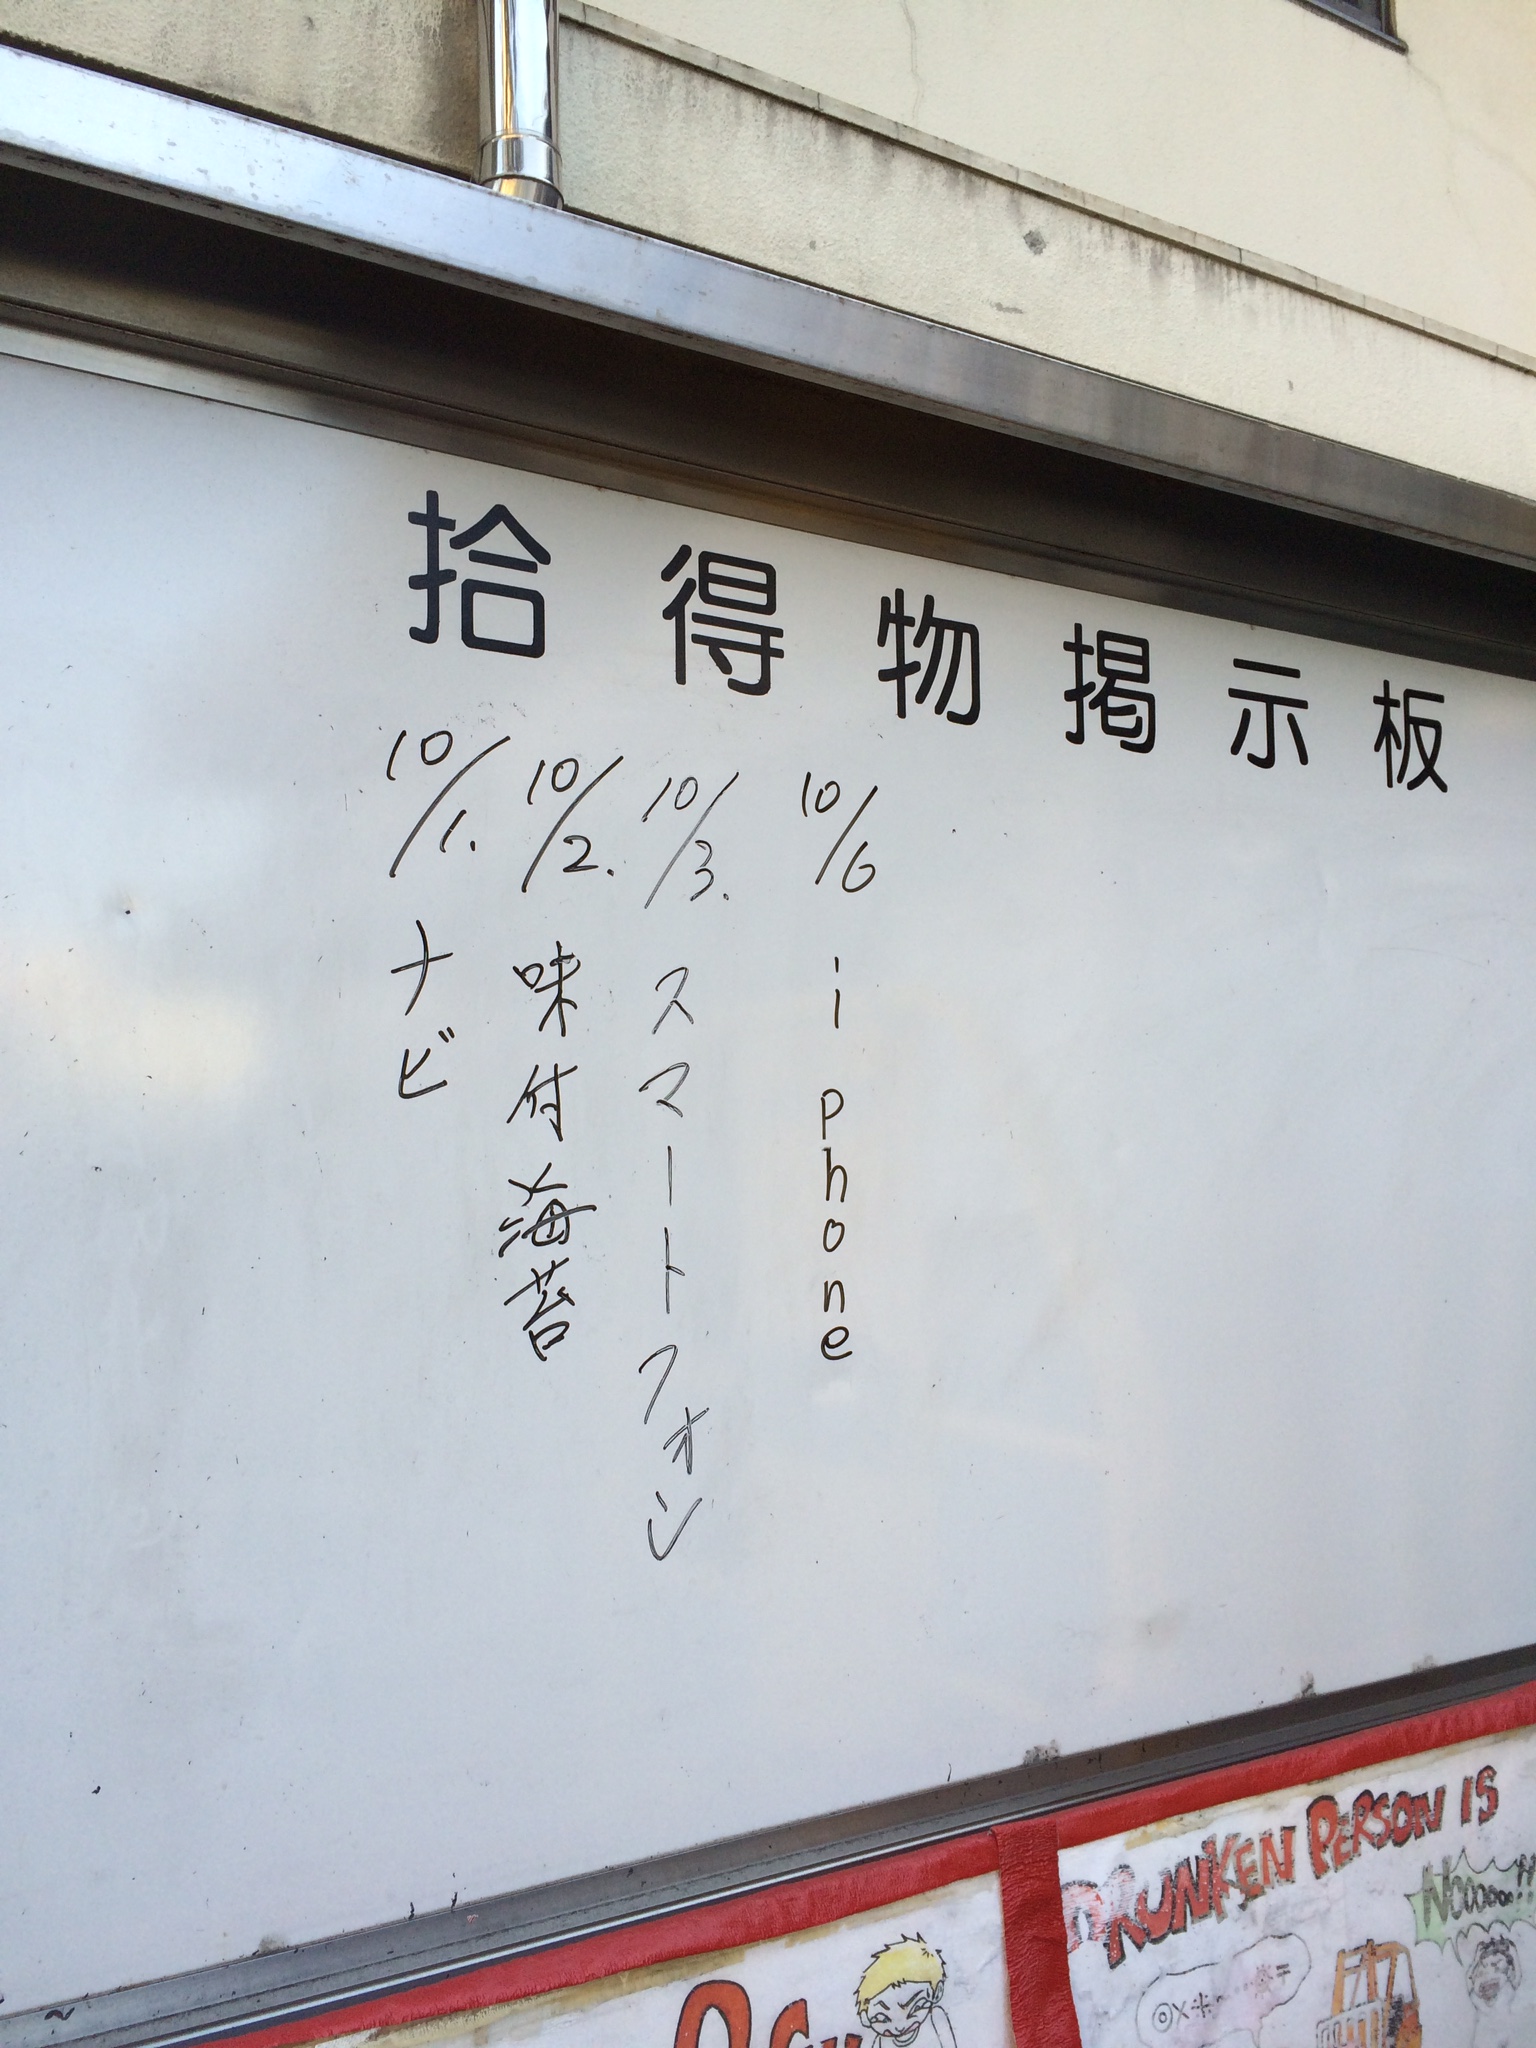 拾得物掲示板
10/1. ナビ
10/2. 味付海苔
10/3. スマートフォン
10/6 iphone
DRUNKEN PERSON IS
NOooooo!!